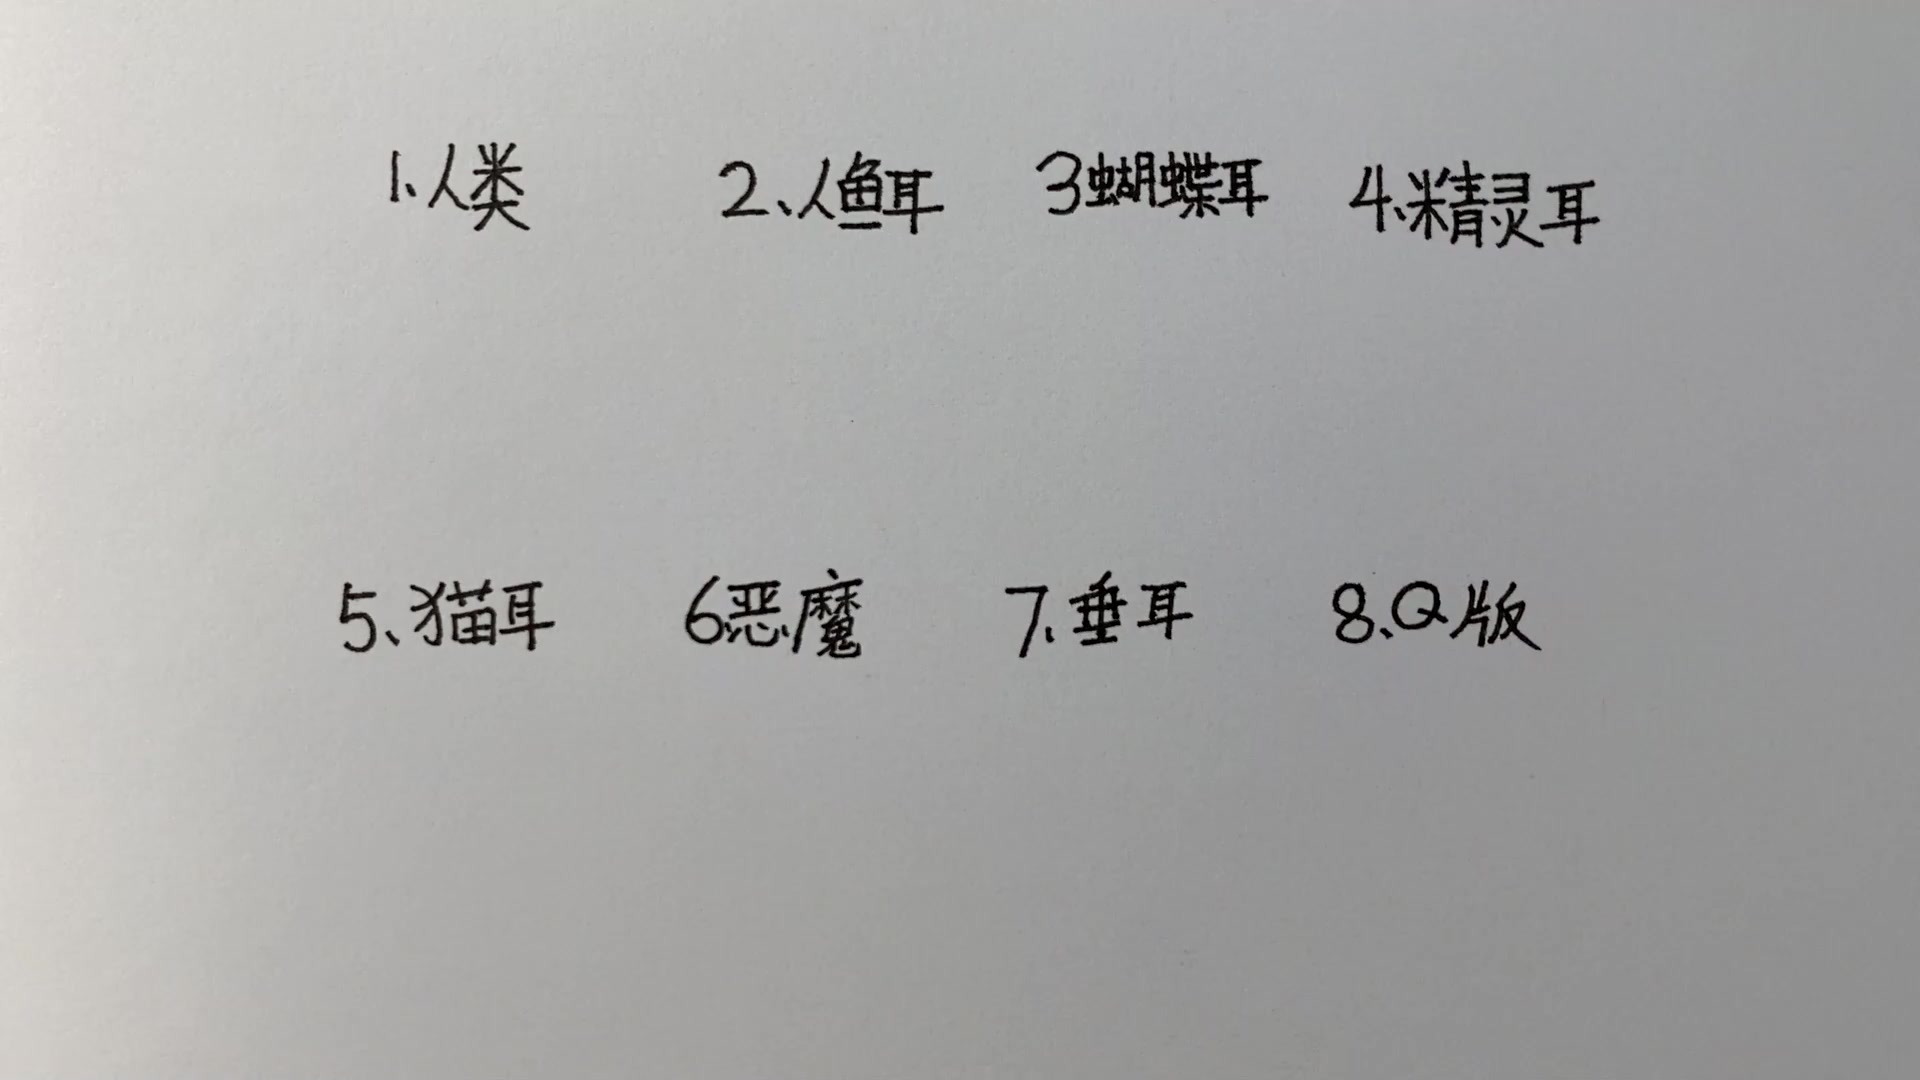 1、人类 2、人鱼耳 3蝴蝶耳 4、精灵耳
5、猫耳 6恶魔 7、垂耳 8、Q版